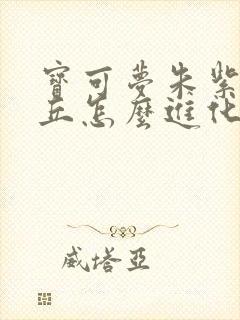 寶可夢朱紫
丘怎麼進化
威塔亞